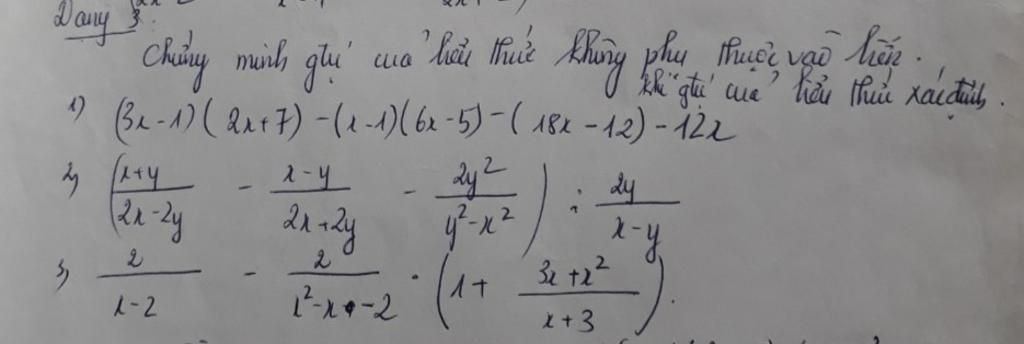 Dạng 3
Chứng minh gtrị của biểu thức không phụ thuộc vào biến.
khi gtrị của biểu thức xác định.
1) (3x-1)(2x+7)-(x-1)(6x-5)-(18x-12)-12x
2, ((x+y)/(2x-2y) - (x-y)/(2x+2y) - 2y²/(y²-x²)) : 2y/(x-y)
3, 2/(x-2) - 2/(x²-x-2) · (1+ (3x+x²)/(x+3)).